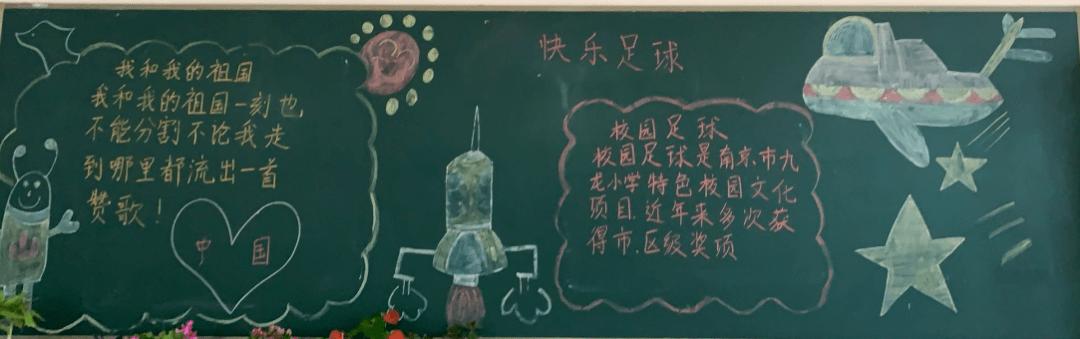 我和我的祖国
我和我的祖国一刻也
不能分割不论我走
到哪里都流出一首
赞歌！
中国
快乐足球
校园足球
校园足球是南京市九
龙小学特色校园文化
项目.近年来多次获
得市.区级奖项